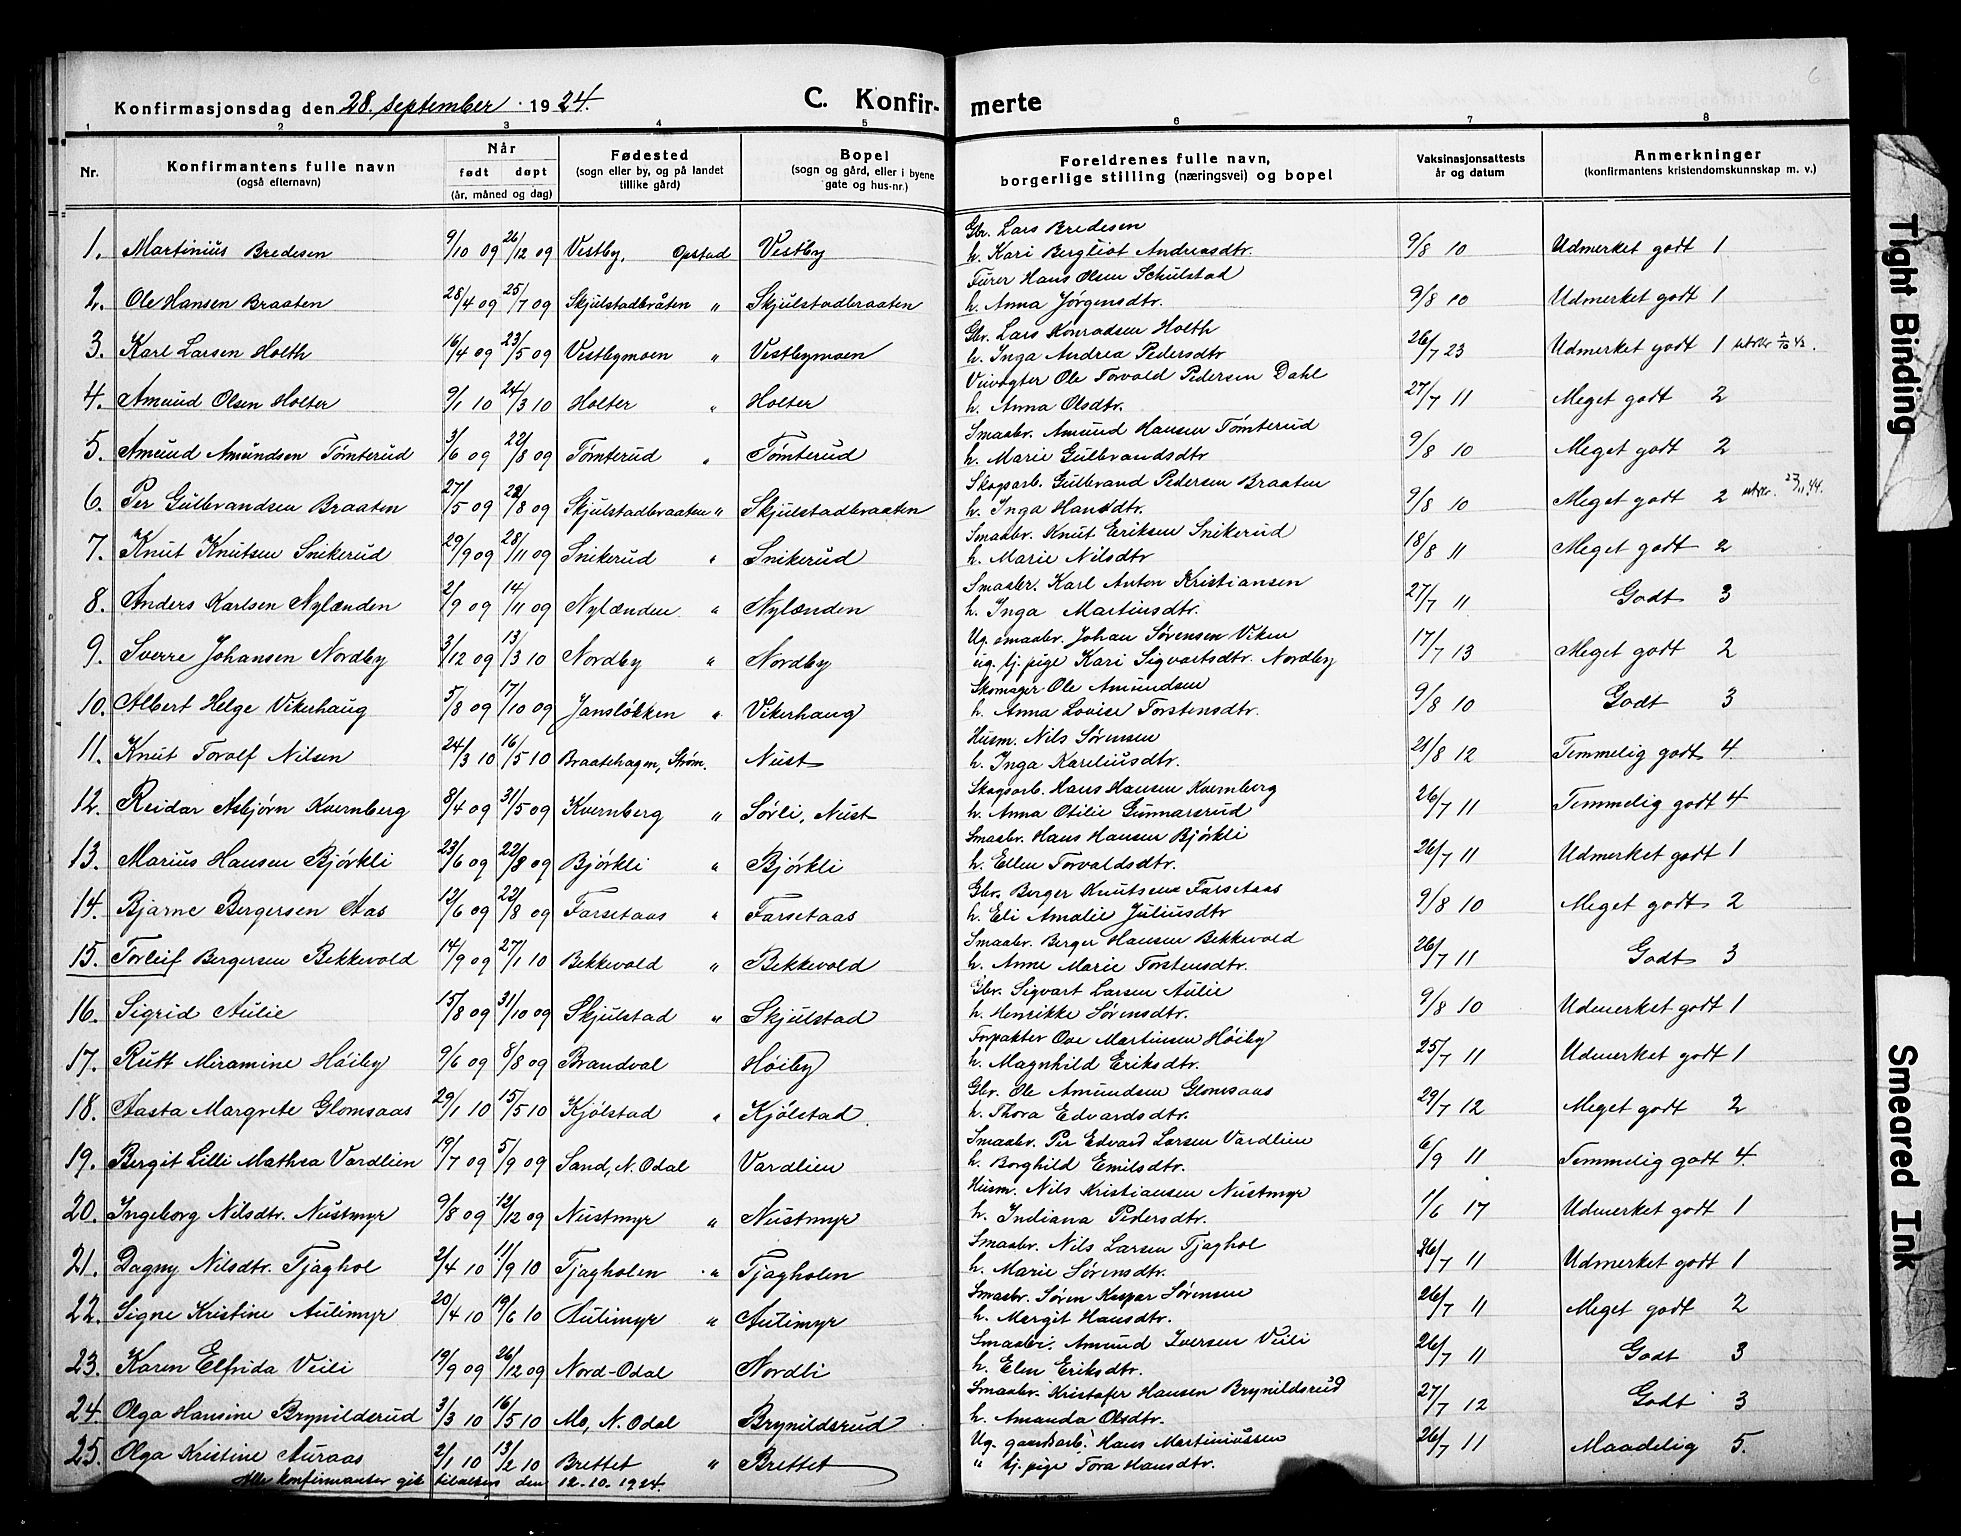 Konfirmasjonsdag den 28. september 1924. C. Konfir- merte
6
1 2 3 4 5 6 7 8
Nr. Konfirmantens fulle navn (også efternavn) Når født døpt (år, måned og dag) Fødested (sogn eller by, og på landet tillike gård) Bopel (sogn og gård, eller i byene gate og hus-nr.) Foreldrenes fulle navn, borgerlige stilling (næringsvei) og bopel Vaksinasjonsattests år og datum Anmerkninger (konfirmantens kristendomskunnskap m. v.)
1. Martinius Bredesen 9/10 09 26/12 09 Vestby, Opstad Vestby Gbr. Lars Bredesen
h. Kari Bergliot Andreasdtr. 9/8 10 Udmerket godt 1
2. Ole Hansen Braaten 28/4 09 25/7 09 Skjulstadbråten " Skjulstadbraaten Furer Hans Olsen Schulstad
h. Anna Jørgensdtr. 9/8 10 Udmerket godt 1
3. Karl Larsen Holth 16/4 09 23/5 09 Vestbymoen " Vestbymoen Gbr. Lars Konradsen Holth
h. Inga Andrea Pedersdtr 26/7 23 Udmerket godt 1
4. Amund Olsen Holter 9/1 10 24/3 10 Holter " Holter Veivogter Ole Torvald Pedersen Dahl
h. Anna Olsdtr. 27/7 11 Meget godt 2
5. Amund Amundsen Tømterud 3/6 09 22/8 09 Tømterud " Tømterud Smaabr. Amund Hansen Tømterud
h. Marie Gulbrandsdtr 9/8 10 Meget godt 2
6. Per Gulbrandsen Braaten 27/5 09 22/8 09 Skjulstadbraaten " Skjulstadbraaten Skogsarb. Gulbrand Pedersen Braaten
h. Inga Hansdtr. 9/8 10 Meget godt 2 23/11 44.
7. Knut Knutsen Snikerud 29/9 09 28/11 09 Snikerud " Snikerud Smaabr. Knut Eriksen Snikerud
h. Marie Nilsdtr 18/8 11 Meget godt 2
8. Anders Karlsen Nylænden 2/9 09 14/11 09 Nylænden " Nylænden Smaabr. Karl Anton Kristiansen
h. Inga Martinsdtr. 27/7 11 Godt 3
9. Sverre Johansen Nordby 3/12 09 13/3 10 Nordby " Nordby Ug. smaabr. Johan Sørensen Viken
ug. tj. pige Kari Sigvartsdtr. Nordby 17/7 13 Meget godt 2
10. Albert Helge Vikerhaug 5/8 09 7/10 09 Jansløkken " Vikerhaug Skomager Ole Amundsen
h. Anna Lovise Torstensdtr. 9/8 10 Godt 3
11. Knut Torolf Nilsen 24/3 10 16/5 10 Braatehagen, Strøm. Nust Husm. Nils Sørensen
h. Inga Kareliusdtr. 21/8 12 Temmelig godt 4
12. Reidar Asbjørn Kvernberg 8/4 09 31/5 09 Kvernberg " Sørli, Nust Skogsarb. Hans Hansen Kvernberg
h. Anna Otilie Gunnarsrud 26/7 11 Temmelig godt 4
13. Marius Hansen Bjørkli 23/6 09 22/8 09 Bjørkli " Bjørkli Smaabr. Hans Hansen Bjørkli
h. Ellen Torvaldsdtr. 26/7 11 Udmerket godt 1
14. Bjarne Bergersen Aas 12/6 09 22/8 09 Farsetaas " Farsetaas Gbr. Berger Knutsen Farsetaas
h. Eli Amalie Juliusdtr 9/8 10 Meget godt 2
15. Torleif Bergersen Bekkevold 14/9 09 27/1 10 Bekkevold " Bekkevold Smaabr. Berger Hansen Bekkevold
h. Anne Marie Torstensdtr. 26/7 11 Godt 3
16. Sigrid Aulie 15/8 09 31/10 09 Skjulstad " Skjulstad Gbr. Sigvart Larsen Aulie
h. Henrikke Sørensdtr. 9/8 10 Udmerket godt 1
17. Rutt Miramine Høiby 9/6 09 8/8 09 Brandval Høiby Forpakter Ove Martinsen Høiby
h. Magnhild Eriksdtr. 25/7 11 Udmerket godt 1
18. Aasta Margrete Glomsaas 29/1 10 15/5 10 Kjølstad " Kjølstad. Gbr. Ole Amundsen Glomsaas
h. Thora Edvardsdtr. 29/7 12 Meget godt 2
19. Bergit Lilli Mathea Vardlien 19/7 09 5/9 09 Sand, N. Odal Vardlien Smaabr. Per Edvard Larsen Vardlien
h. Borghild Emilsdtr. 6/9 11 Temmelig godt 4.
20. Ingeborg Nilsdtr. Nustmyr 9/8 09 12/12 09 Nustmyr " Nustmyr Husm. Nils Kristiansen Nustmyr
h. Indiana Pedersdtr. 1/6 17 Udmerket godt 1
21. Dagny Nilsdtr. Tjaghol 2/4 10 11/9 10 Tjagholen " Tjagholen Smaabr. Nils Larsen Tjaghol
h. Marie Sørensdtr. 26/7 11 Udmerket godt 1
22. Signe Kristine Aulimyr 20/4 10 19/6 10 Aulimyr " Aulimyr Smaabr. Søren Kaspar Sørensen
h. Mergit Hansdtr. 26/7 11 Meget godt 2
23. Karen Elfrida Veili 19/9 09 26/12 09 Nord-Odal Nordli Smaabr. Amund Iversen Veili
h. Elen Eriksdtr. 26/7 11 Godt 3
24. Olga Hansine Brynildsrud 3/3 10 16/5 10 Mo, N. Odal Brynildsrud Smaabr. Kristofer Hansen Brynildsrud
h. Amanda Olsdtr. 27/7 12 Godt 3
25. Olga Kristine Auraas 2/1 10 13/2 10 Brettet " Brettet Ug. gaardsarb. Hans Martiniussen
" tj. pige Tora Hansdtr. 26/7 11 Maadelig 5.
Alle konfirmanter gik tilalters den 12.10.1924.
Tight Binding
Smeared Ink